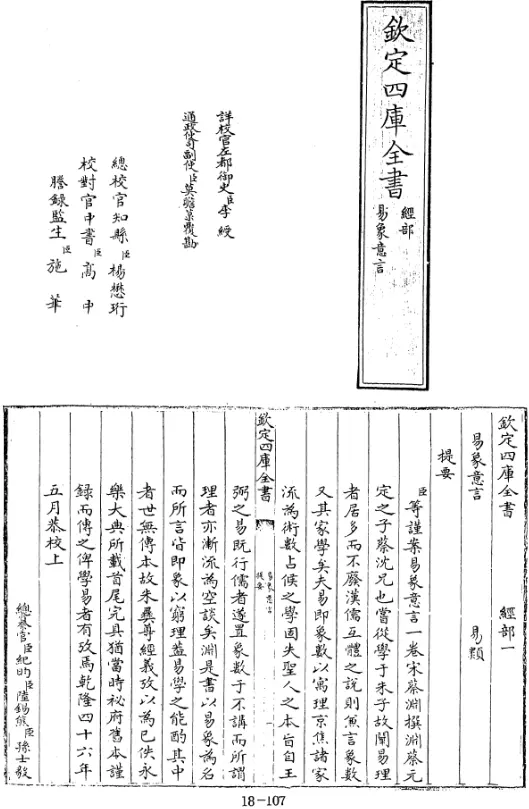 欽定四庫全書
經部
易象意言
詳校官左都御史臣李綬
通政使司副使臣莫瞻菉覆勘
總校官知縣臣楊懋珩
校對官中書臣高中
謄錄監生臣施華
欽定四庫全書 經部一
易象意言 易類
提要
臣等謹案易象意言一卷宋蔡淵撰淵蔡元
定之子蔡沈兄也嘗從學于朱子故闡易理
者居多而不廢漢儒互體之說則兼言象數
又其家學矣夫易即象數以寓理京焦諸家
流為術數占候之學固失聖人之本旨自王
欽定四庫全書
易象意言
提要
弼之易既行儒者遂置象數于不講而所謂
理者亦漸流為空談矣淵是書以易象為名
而所言皆即象以窮理蓋易學之能酌其中
者世無傳本故朱彞尊經義攷以為已佚永
樂大典所載首尾完具猶當時秘府舊本謹
錄而傳之俾學易者有攷焉乾隆四十六年
五月恭校上
總纂官臣紀昀臣陸錫熊臣孫士毅
18-107